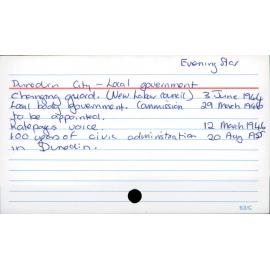 Evening Star
Dunedin City - Local government
Changing guard. (New Labour Council) 3 June 1944
Local body government. Commission 29 March 1946
to be appointed.
Ratepayers voice. 12 March 1946
100 years of civic administration 20 Aug 
in Dunedin.